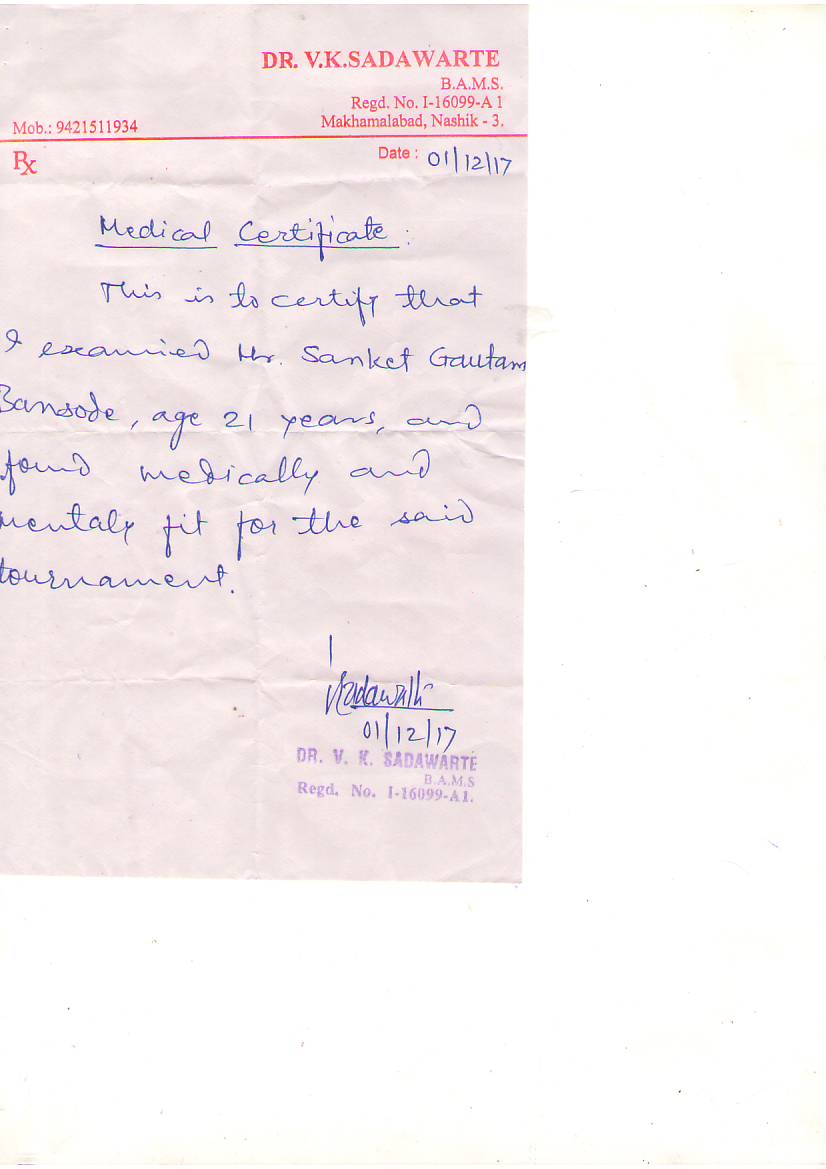 DR. V.K.SADAWARTE
B.A.M.S.
Regd. No. I-16099-A 1
Mob.: 9421511934 Makhamalabad, Nashik - 3.
Rx Date : 01/12/17
Medical Certificate :
This is to certify that
I examined Mr. Sanket Gautam
Bansode, age 21 years, and
found medically and
mentaly fit for the said
tournament.
01/12/17
DR. V. K. SADAWARTE
B.A.M.S
Regd. No. I-16099-A1.